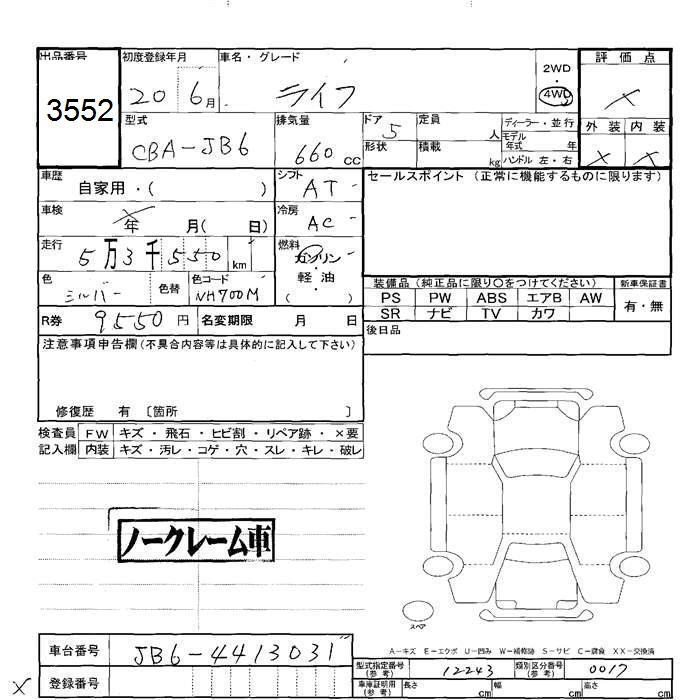 出品番号 初度登録年月 車名・グレード 2WD 評価点
3552 20 6月 ライフ 4WD ×
型式 排気量 ドア 定員 ディーラー・並行 外装 内装
CBA-JB6 660cc 5 人 モデル年式 年 × ×
形状 積載 kg ハンドル 左・右
車歴 自家用・( ) シフト AT セールスポイント (正常に機能するものに限ります)
車検 ×年 月( 日) 冷房 AC
走行 5万3千550 km 燃料 ガソリン・軽油 ( )
色 シルバー 色替 色コード NH700M
装備品 (純正品に限り○をつけてください) 新車保証書
PS PW ABS エアB AW 有・無
SR ナビ TV カワ
R券 9550円 名変期限 月 日 後日品
注意事項申告欄 (不具合内容等は具体的に記入して下さい)
修復歴 有 〔箇所 〕
検査員 FW キズ・飛石・ヒビ割・リペア跡・×要
記入欄 内装 キズ・汚レ・コゲ・穴・スレ・キレ・破レ
ノークレーム車
スペア
A-キズ E-エクボ U-凹み W-補修跡 S-サビ C-腐食 XX-交換済
車台番号 JB6-4413031 型式指定番号(参考) 12243 類別区分番号(参考) 0017
× 登録番号 車庫証明用(参考) 長さ cm 幅 cm 高さ cm